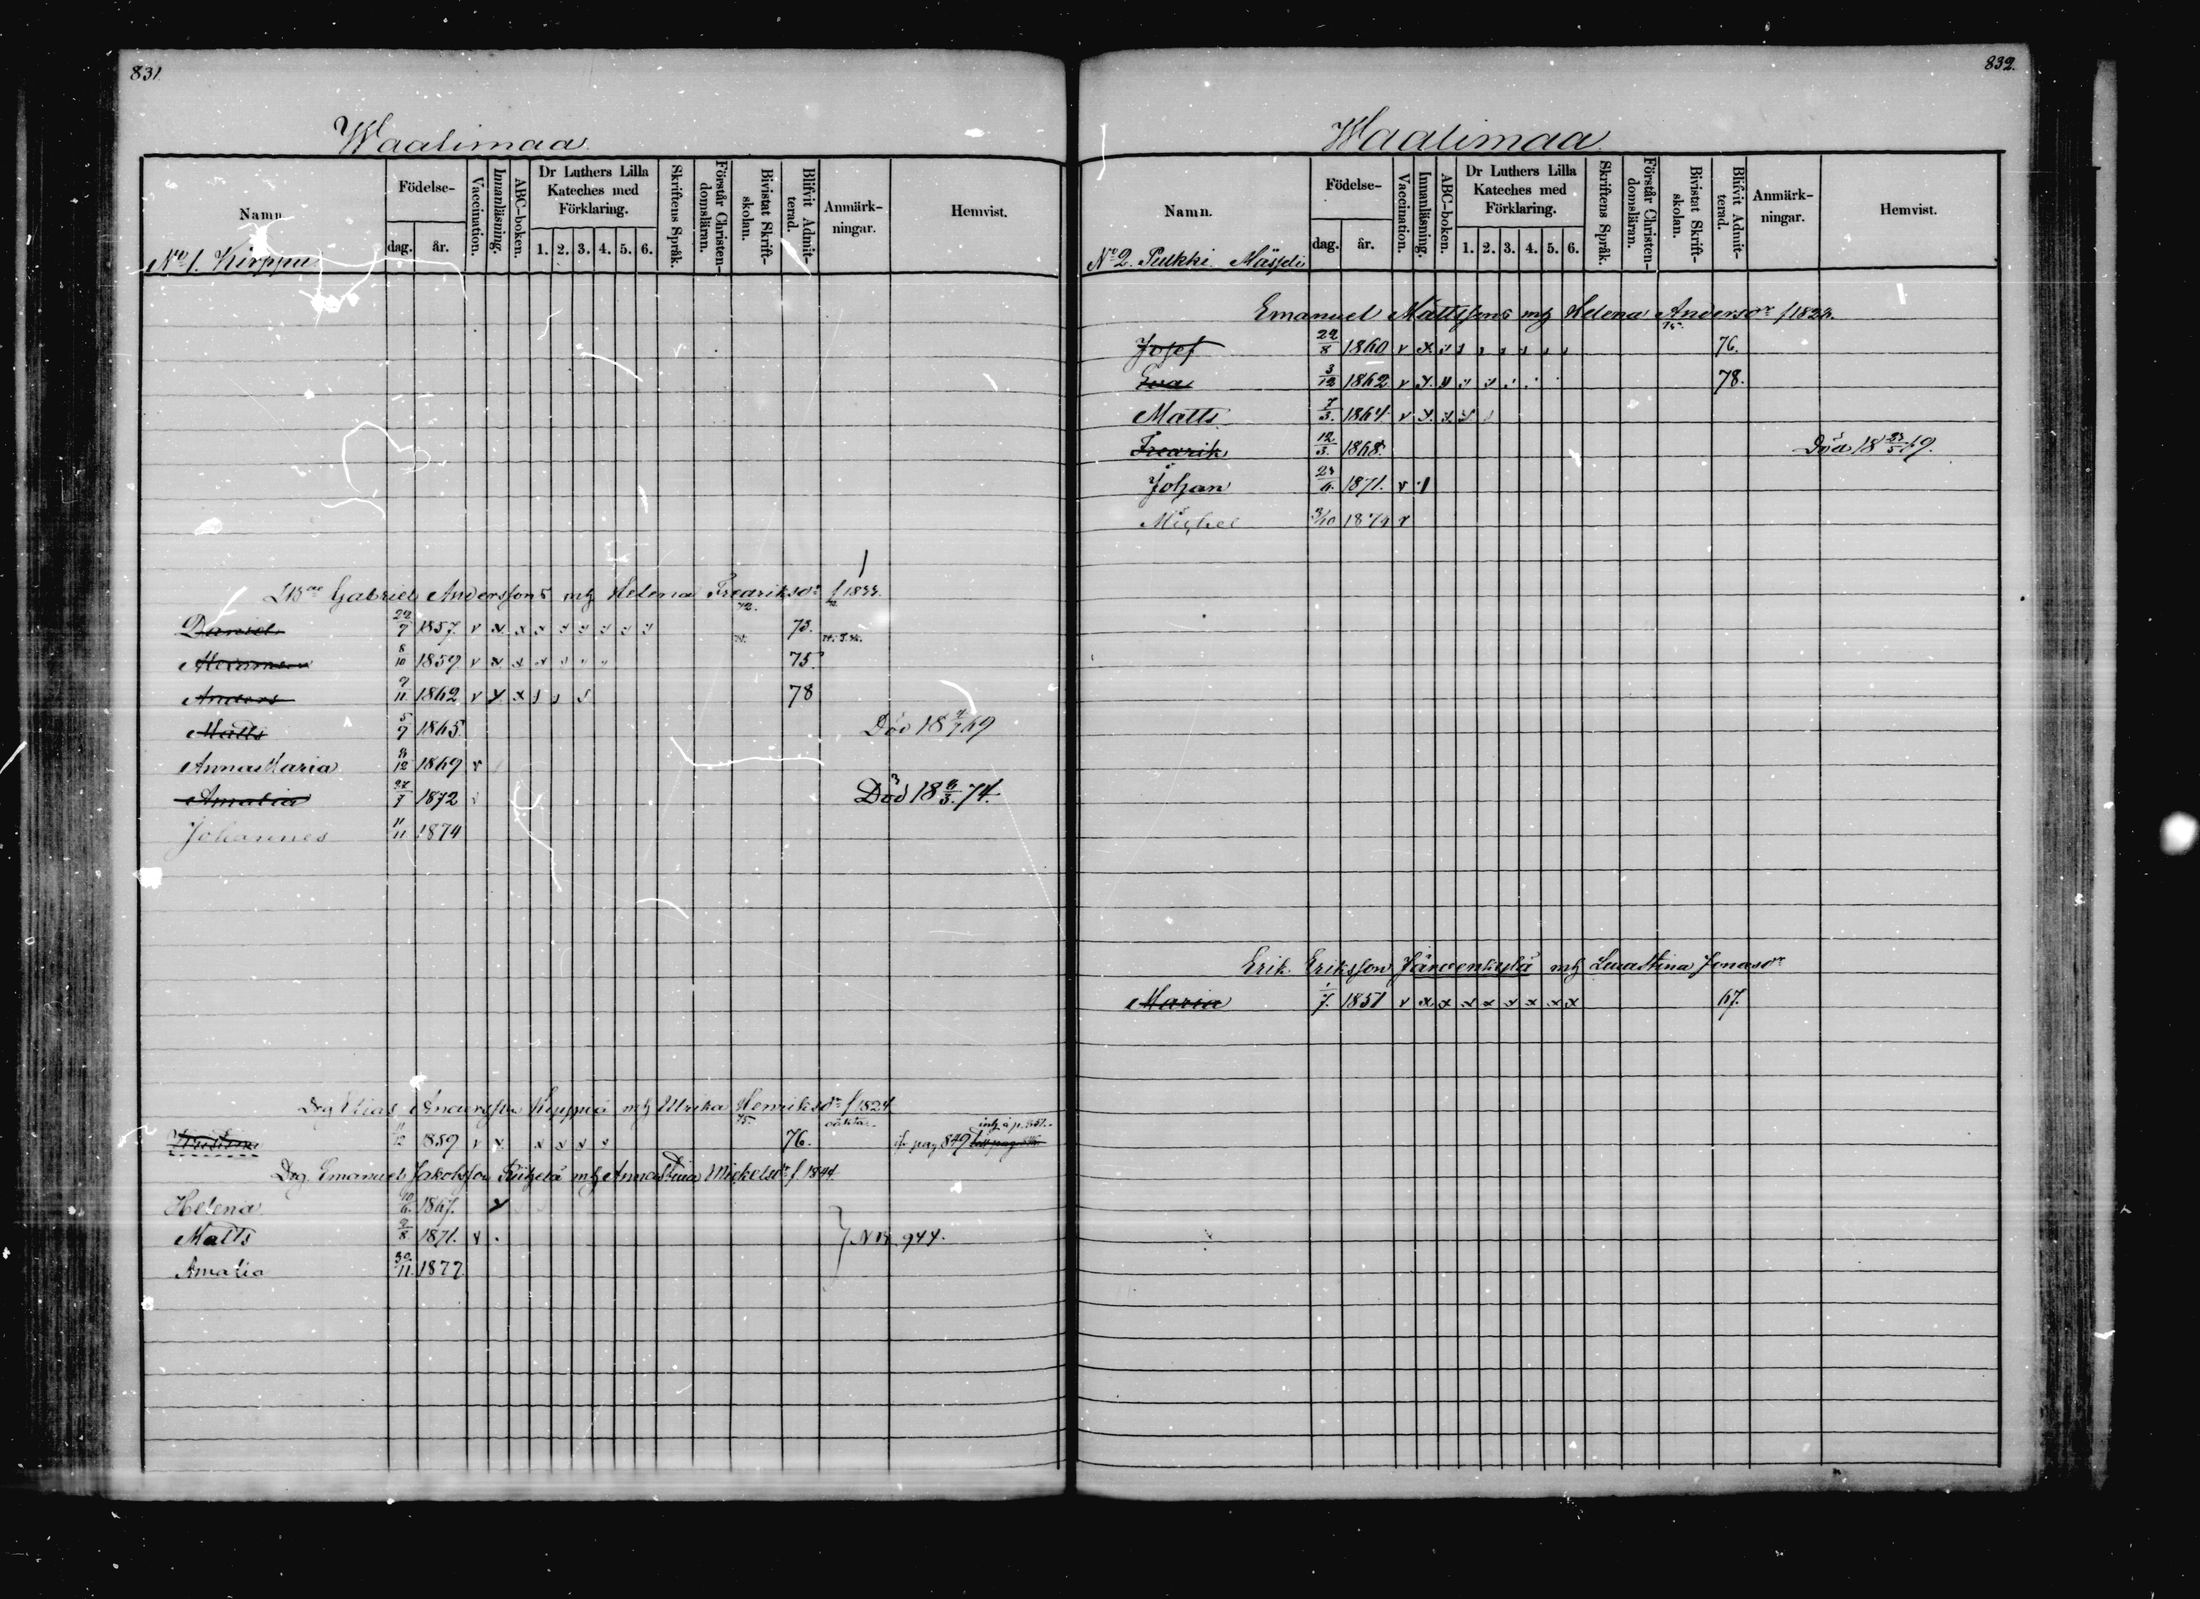 831.
Waalimaa.
Namn.
Födelse-
dag. år.
Vaccination.
Innanläsning.
ABC-boken.
Dr Luthers Lilla Kateches med Förklaring.
1. 2. 3. 4. 5. 6.
Skriftens Språk.
Förstår Christendomsläran.
Bivistat Skriftskolan.
Blifvit Admitterad.
Anmärkningar.
Hemvist.
No 1. Kirppu
Gabriel Anderssons mh Helena Fredriksdr f 1833.
Daniel 1857. v x x x 73.
8/10 1859 v x x x 75.
Anders 9/11 1862 v x x 78
Matts 5/9 1865. Död 18 69
Anna Maria 1869 v
Amalia 1872 Död 18 74.
Johannes 11/11 1874
Drg Elias Andersson mh Ulrika Henriksdr f 1824
11/12 1859 v x x x x x 76. pag 849
Drg Emanuel Jakobsson mh Anna Stina Mickelsdr f 1844
Helena 10/6. 1867.
Matts 2/8 1871. v
Amalia 30/11. 1877
944.
832.
Waalimaa.
Namn.
Födelse-
dag. år.
Vaccination.
Innanläsning.
ABC-boken.
Dr Luthers Lilla Kateches med Förklaring.
1. 2. 3. 4. 5. 6.
Skriftens Språk.
Förstår Christendomsläran.
Bivistat Skriftskolan.
Blifvit Admitterad.
Anmärkningar.
Hemvist.
No 2. Pulkki
Emanuel Mattssons mh Helena Andersdr
Josef 1860 v x 76.
Eva 3/12 1862 v 78.
Matts 7/3. 1864. v
Fredrik 12/3. 1868. Död 18 69.
Johan 1871. v
Michel 3/10 187 v
Erik Eriksson mh Lena Stina Jonasdr
Maria 1/7. 1851 v x x x x x x x x 67.